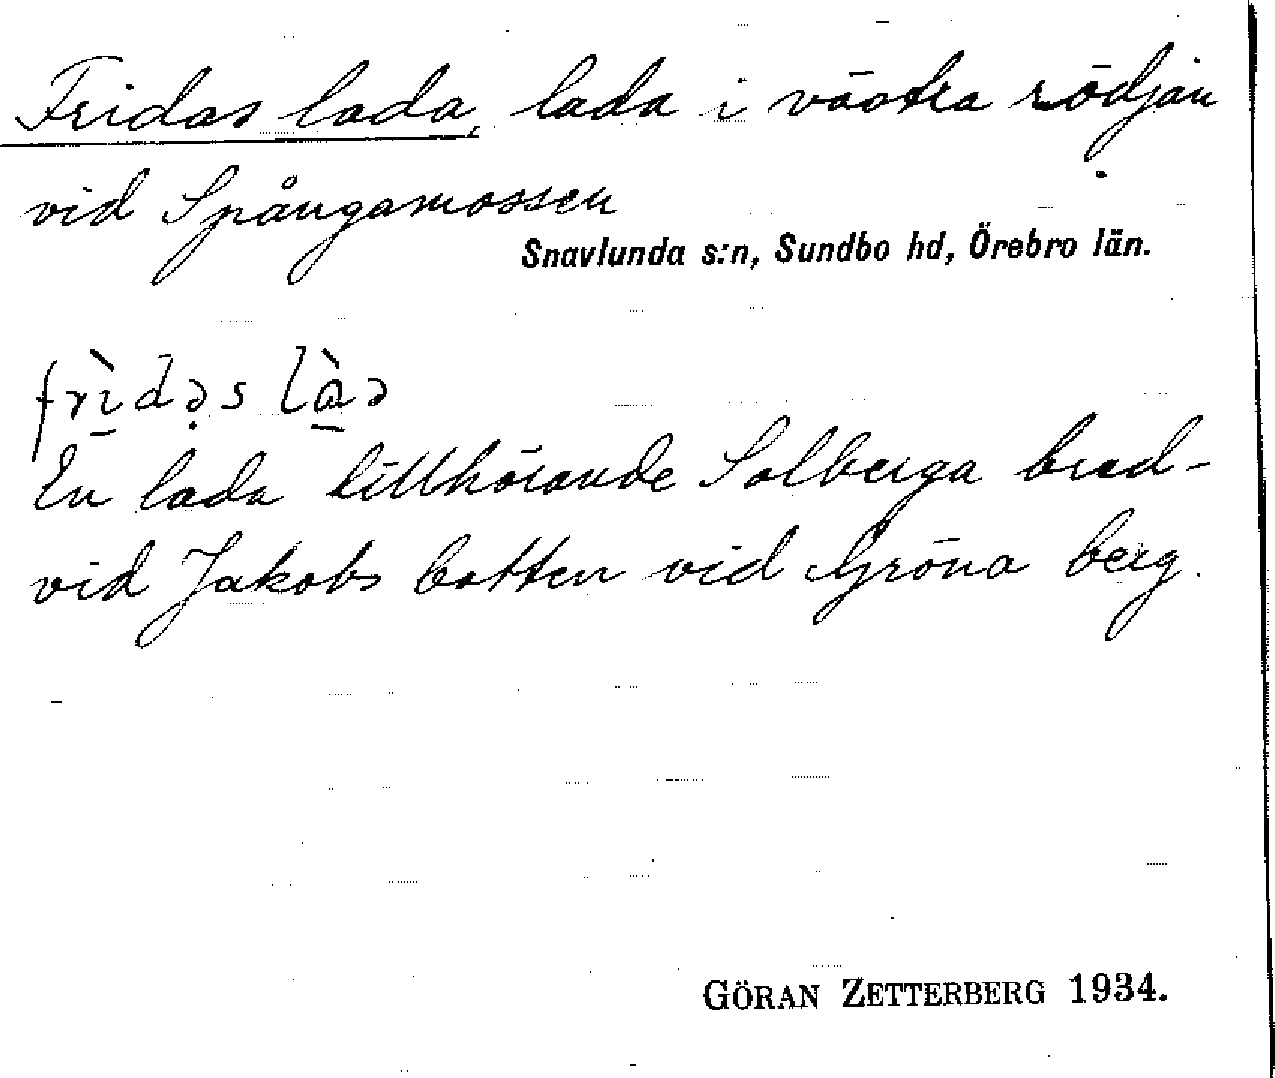 Fridas lada, lada i västra rödjan
vid Spångamossen
Snavlunda s:n, Sundbo hd, Örebro län.
frı̀dəs lɑ̀ə
En lada tillhörande Solberga bred-
vid Jakobs botten vid Gröna berg.
GÖRAN ZETTERBERG 1934.